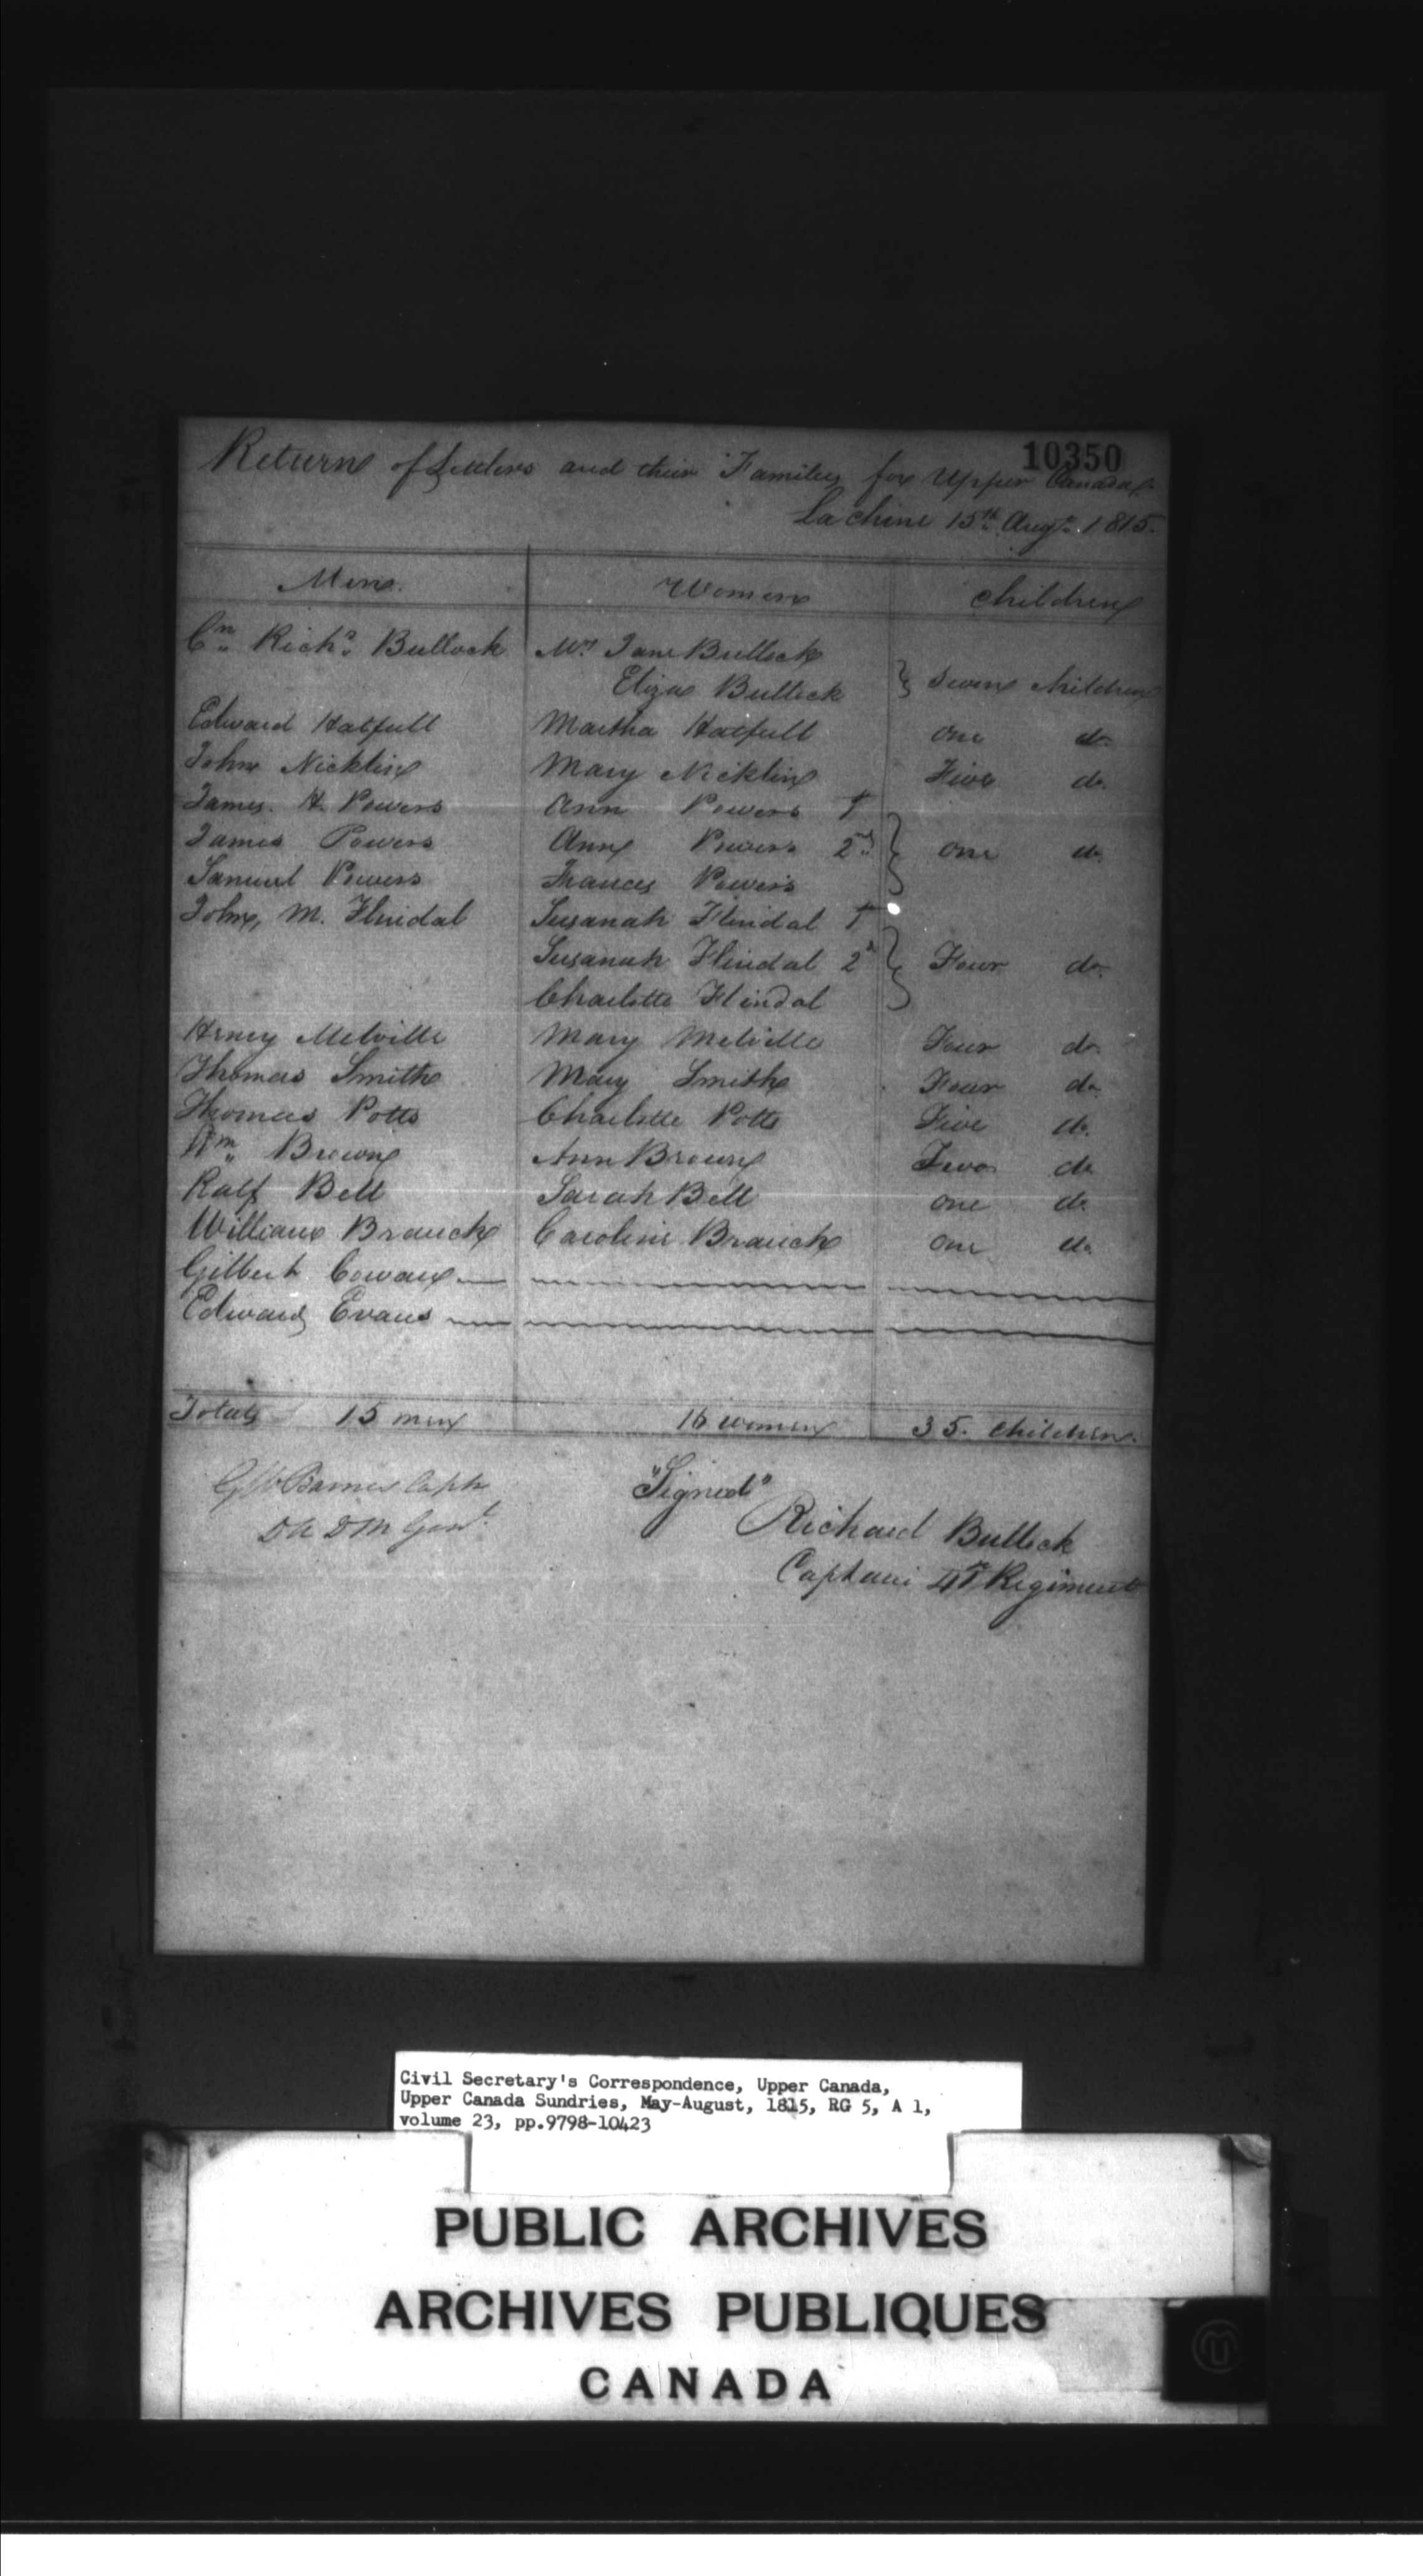 10350
Return of Settlers and their Families for Upper Canada
La chine 15th Augt. 1815.
Men. Women Children
Cn Richd Bullock Mrs Jane Bullock
Eliza Bullock } Seven Children
Edward Hatfull Martha Hatfull one do.
John Nicklin Mary Nicklin Five do.
James. H. Powers Ann Powers 1st
James Powers Ann Powers 2nd } one do.
Samuel Powers Frances Powers
John, M. Flindal Susanah Flindal 1st
Susanah Flindal 2d } Four do.
Charlotte Flindal
Henry Melville Mary Melville Four do.
Thomas Smith Mary Smith Four do.
Thomas Potts Charlotte Potts Five do.
Wm Brown Ann Brown Two do.
Ralf Bell Sarah Bell one do.
William Branch Caroline Branch one do.
Gilbert Cowan
Edward Evans
Totals 15 men 16 women 35. Children.
Barnes Capt "Signed"
DA DM Genl. Richard Bullock
Captain 41st Regiment
Civil Secretary's Correspondence, Upper Canada,
Upper Canada Sundries, May-August, 1815, RG 5, A 1,
volume 23, pp.9798-10423
PUBLIC ARCHIVES
ARCHIVES PUBLIQUES
CANADA